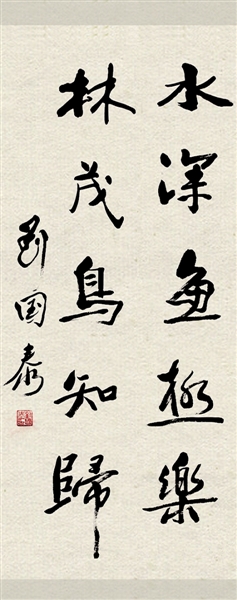 水深魚極樂
林茂鳥知歸
劉國泰